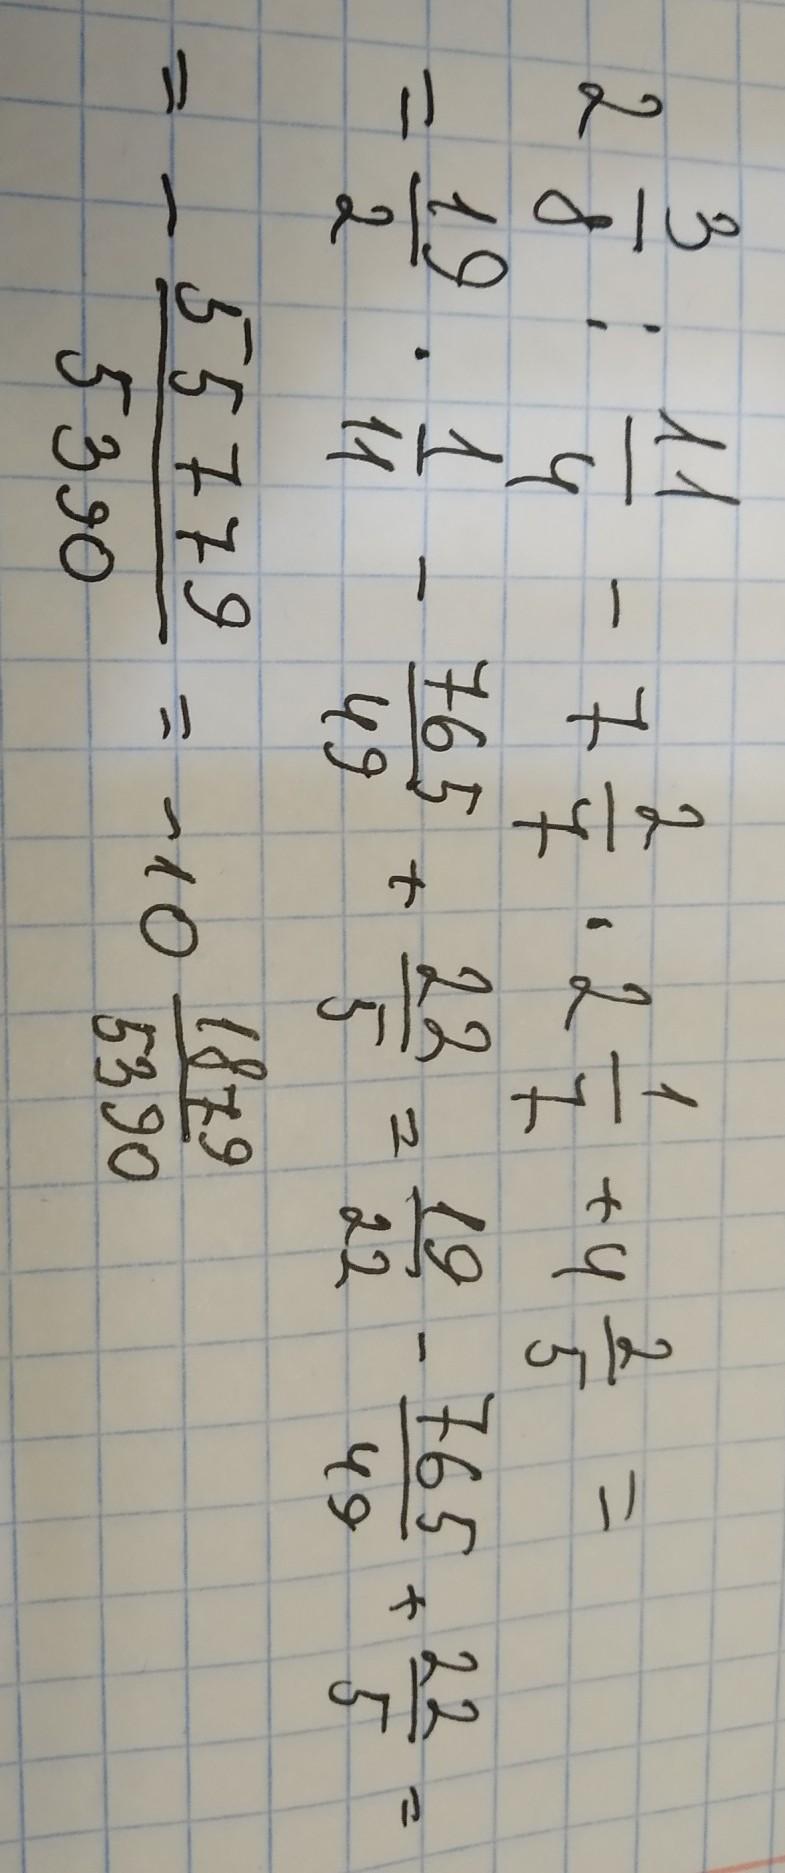 2 3/8 : 11/4 - 7 2/7 · 2 1/7 + 4 2/5 =
= 19/2 · 1/11 - 765/49 + 22/5 = 19/22 - 765/49 + 22/5 =
= - 55779/5390 = -10 1879/5390